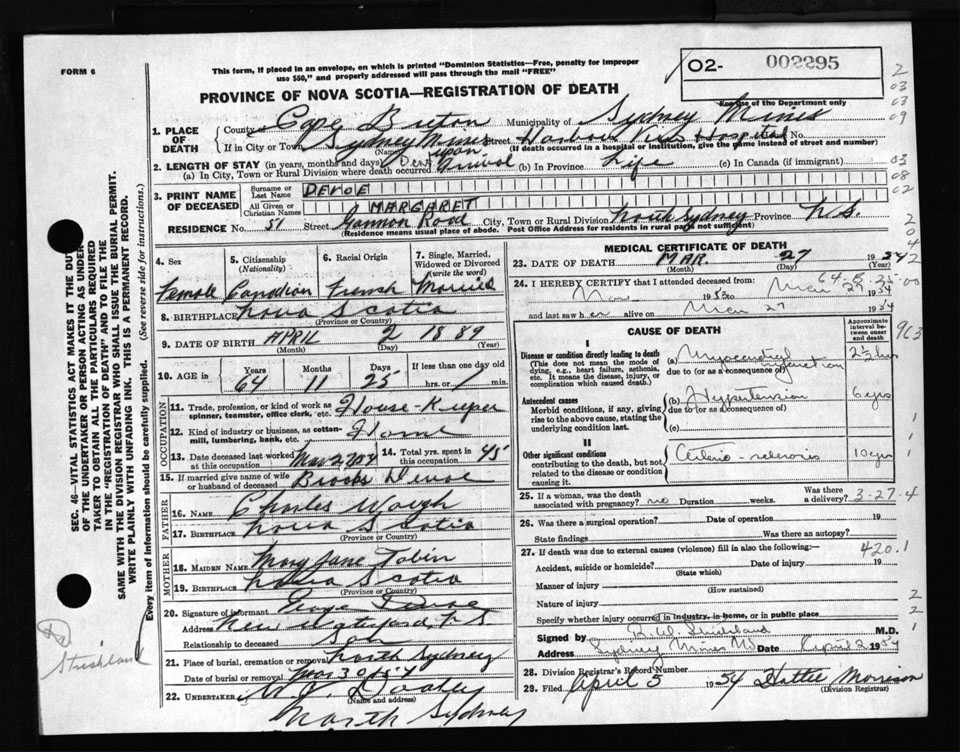 FORM 6
This form, if placed in an envelope, on which is printed "Dominion Statistics—Free, penalty for improper
use $50," and properly addressed will pass through the mail "FREE"
O2- 002295
For use of the Department only
PROVINCE OF NOVA SCOTIA—REGISTRATION OF DEATH
1. PLACE OF DEATH
County of Cape Breton Municipality of Sydney Mines
If in City or Town Sydney Mines Street Harbour View Hospital No.
(Name) (If death occurred in a hospital or institution, give the name instead of street and number)
2. LENGTH OF STAY (in years, months and days)
(a) In City, Town or Rural Division where death occurred Dead upon Arrival (b) In Province Life (c) In Canada (if immigrant)
3. PRINT NAME OF DECEASED
Surname or Last Name DEVOE
All Given or Christian Names MARGARET
RESIDENCE No. 57 Street Gannon Road City, Town or Rural Division North Sydney Province N.S.
(Residence means usual place of abode. Post Office Address for residents in rural parts not sufficient)
4. Sex Female
5. Citizenship (Nationality) Canadian
6. Racial Origin French
7. Single, Married, Widowed or Divorced (write the word) Married
8. BIRTHPLACE Nova Scotia
(Province or Country)
9. DATE OF BIRTH APRIL 2 1889
(Month) (Day) (Year)
10. AGE in Years 64 Months 11 Days 25 If less than one day old hrs. or min.
OCCUPATION
11. Trade, profession, or kind of work as spinner, teamster, office clerk, etc. House-Keeper
12. Kind of industry or business, as cotton-mill, lumbering, bank, etc. Home
13. Date deceased last worked at this occupation Mar 27/54
14. Total yrs. spent in this occupation 45
15. If married give name of wife or husband of deceased Devoe
FATHER
16. NAME Charles Waugh
17. BIRTHPLACE Nova Scotia
(Province or Country)
MOTHER
18. MAIDEN NAME Mary Jane Tobin
19. BIRTHPLACE Nova Scotia
(Province or Country)
20. Signature of informant George Devoe
Address New Waterford, N S
Relationship to deceased Son
21. Place of burial, cremation or removal North Sydney
Date of burial or removal Mar 30 1954
22. UNDERTAKER W. J. Dooley
(Name and address)
North Sydney
MEDICAL CERTIFICATE OF DEATH
23. DATE OF DEATH MAR. 27 1954
(Month) (Day) (Year)
24. I HEREBY CERTIFY that I attended deceased from:
Nov 1953 to Mar 27 1954
and last saw her alive on Mar 27 1954
CAUSE OF DEATH
Approximate interval between onset and death
I
Disease or condition directly leading to death
(This does not mean the mode of dying, e.g., heart failure, asthenia, etc. It means the disease, injury, or complication which caused death.)
(a) Myocardial Infarction 2½ hrs
due to (or as a consequence of)
Antecedent causes
Morbid conditions, if any, giving rise to the above cause, stating the underlying condition last.
(b) Hypertension 6 yrs
due to (or as a consequence of)
(c)
II
Other significant conditions
contributing to the death, but not related to the disease or condition causing it.
Arterio-sclerosis 10 yrs
25. If a woman, was the death associated with pregnancy? no Duration weeks. Was there a delivery?
3-27-4
26. Was there a surgical operation? Date of operation 19
State findings Was there an autopsy?
27. If death was due to external causes (violence) fill in also the following:—
420.1
Accident, suicide or homicide? Date of injury 19
(State which)
Manner of injury
(How sustained)
Nature of injury
Specify whether injury occurred in industry, in home, or in public place
Signed by Strickland M.D.
Address Sydney Mines NS Date April 2 1954
28. Division Registrar's Record Number
29. Filed April 5 1954 Hattie Morrison
(Division Registrar)
SEC. 46—VITAL STATISTICS ACT MAKES IT THE DUTY
OF THE UNDERTAKER OR PERSON ACTING AS UNDERTAKER TO OBTAIN ALL THE PARTICULARS REQUIRED
IN THE "REGISTRATION OF DEATH" AND TO FILE THE
SAME WITH THE DIVISION REGISTRAR WHO SHALL ISSUE THE BURIAL PERMIT.
WRITE PLAINLY WITH UNFADING INK. THIS IS A PERMANENT RECORD.
Every item of information should be carefully supplied. (See reverse side for instructions.)
Dr Strickland
2
03
03
09
03
08
02
2
0
4
242
64-5-25-00
963
1
0
1
1
2
2
1